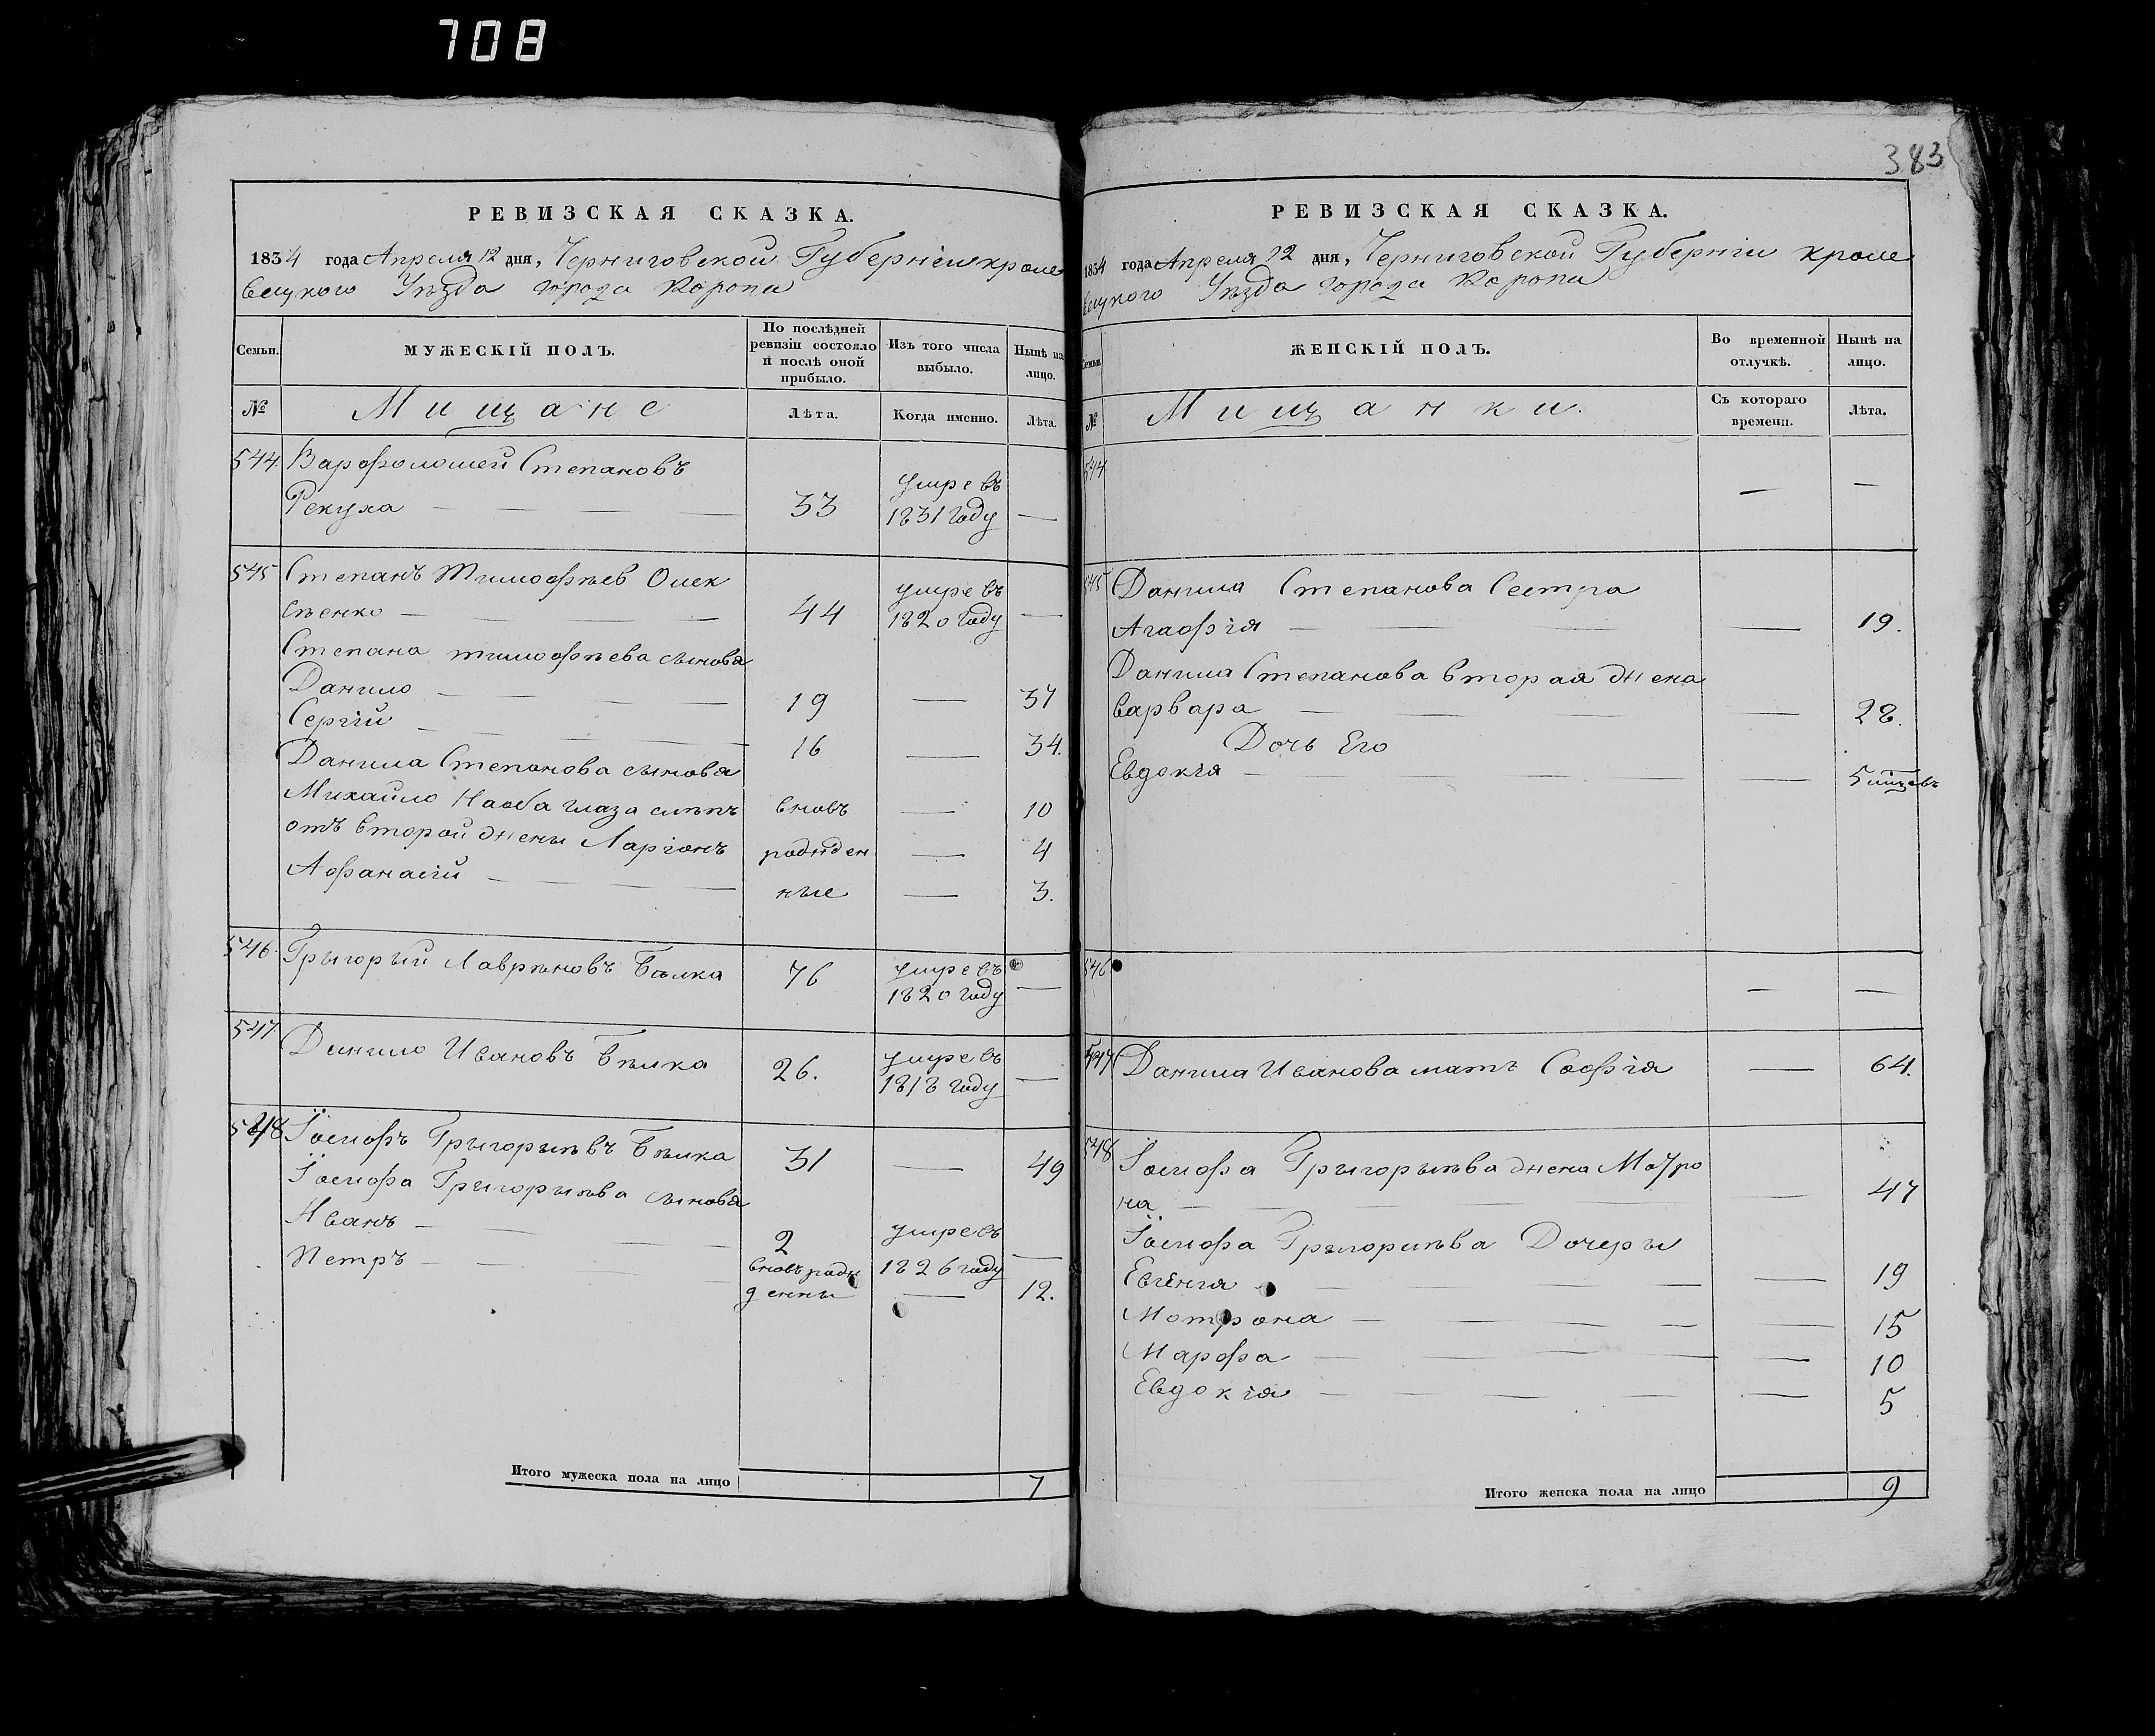 708
383
РЕВИЗСКАЯ СКАЗКА.
1834 года Апреля 12 дня, Черниговской Губерніи кроле
вецкого Уѣзда города Коропа
Семьи.
МУЖЕСКІЙ ПОЛЪ.
По послѣдней ревизіи состояло и послѣ оной прибыло.
Изъ того числа выбыло.
Нынѣ на лицо.
№
Мищане
Лѣта.
Когда именно.
Лѣта.
544. Варфоломей Степановъ
Рекуха — 33 умре въ 1831 году —
545 Степанъ Тимофѣев Олек
сѣенко — 44 умре въ 1820 году —
Степана тимофѣева сыновя
Данило — 19 — 37
Сергій — 16 — 34.
Данила Степанова сыновя
Михайло на оба глаза слѣпъ вновъ — 10
отъ второй жены Ларіонъ рожден — 4
Афанасій — ные — 3.
546. Григорый Лаврѣновъ Бѣлка 76 умре въ 1820 году —
547 Данило Ивановъ Бѣлка 26. умре въ 1818 году —
548 Іосифъ Григорыѣвъ Бѣлка 31 — 49
Іосифа Григорыѣва сыновя
Иванъ — 2 умре въ 1826 году —
Петръ — вновъ рож
денны — 12.
Итого мужеска пола на лицо 7
РЕВИЗСКАЯ СКАЗКА.
1834 года Апреля 12 дня, Черниговской Губерніи кроле
вецкого Уѣзда города Коропа
Семьи.
ЖЕНСКІЙ ПОЛЪ.
Во временной отлучкѣ.
Нынѣ на лицо.
№
Мищанки.
Съ котораго времени.
Лѣта.
544 — —
545 Данила Степанова Сестра
Агафія — — 19.
Данила Степанова вторая жена
варвара — — 28.
Дочь Его
Евдокія — — 5 мѣцевъ
546 — —
547 Данила Иванова матъ Софія — 64.
548 Іосифа Григорыѣва жена Мотро
на — — 47
Іосифа Григорыѣва Дочеры
Евгенія — — 19
Мотрона — — 15
Марфа — — 10
Евдокія — — 5
Итого женска пола на лицо 9